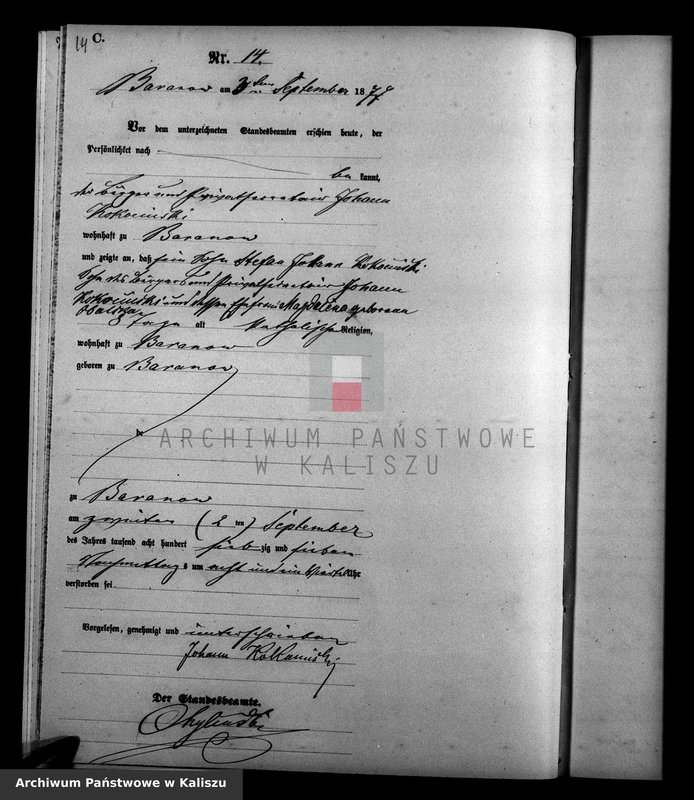 14 C.
Nr. 14.
Baranow am 3ten September 1877
Vor dem unterzeichneten Standesbeamten erschien heute, der
Persönlichkeit nach
be kannt,
der Bürger und Privatsecretair Johann
Kokocinski
wohnhaft zu Baranow
und zeigte an, daß sein Sohn Stefan Johann Kokocinski
Sohn des Bürgers und Privatsecretair Johann
Kokocinski und dessen Ehefrau Magdalena geborenen
Tage alt katholischer Religion,
wohnhaft zu Baranow
geboren zu Baranow
de
zu Baranow
am zweiten (2ten) September
des Jahres tausend acht hundert sieb zig und sieben
Nachmittags um acht und ein Uhr
verstorben sei.
Vorgelesen, genehmigt und unterschrieben
Johann Kokocinski
Der Standesbeamte.
ARCHIWUM PAŃSTWOWE
W KALISZU
Archiwum Państwowe w Kaliszu